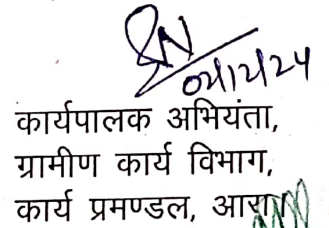 02/12/24
कार्यपालक अभियंता,
ग्रामीण कार्य विभाग,
कार्य प्रमण्डल, आरा।